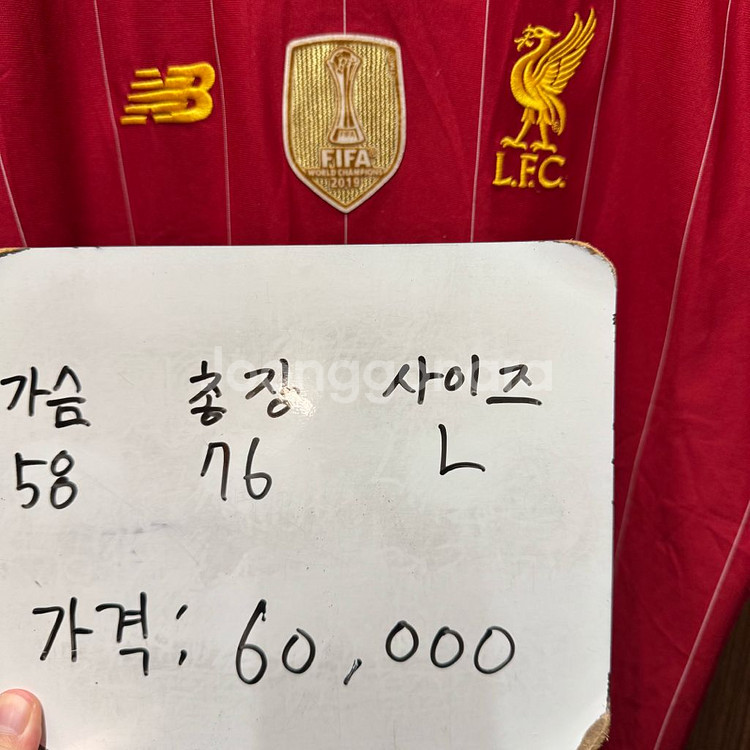 NB
FIFA
WORLD CHAMPIONS
2019
L.F.C.
joonggonara
가슴 총장 사이즈
58 76 L
가격; 60,000